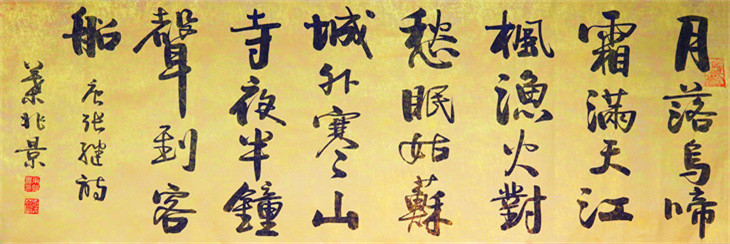 月落烏啼
霜滿天江
楓漁火對
愁眠姑蘇
城外寒山
寺夜半鐘
聲到客
船
唐張繼詩